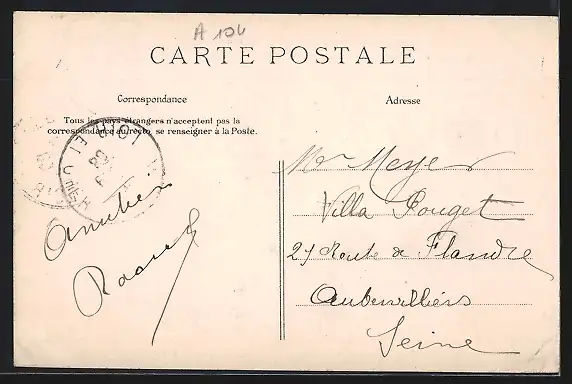 A 104
CARTE POSTALE
Correspondance
Adresse
Tous les pays étrangers n'acceptent pas la
correspondance au recto, se renseigner à la Poste.
LOIR ET CHER
Amitiés
Raoul
Mr Meyer
Villa Pouget
27 Route de Flandre
Aubervilliers
Seine